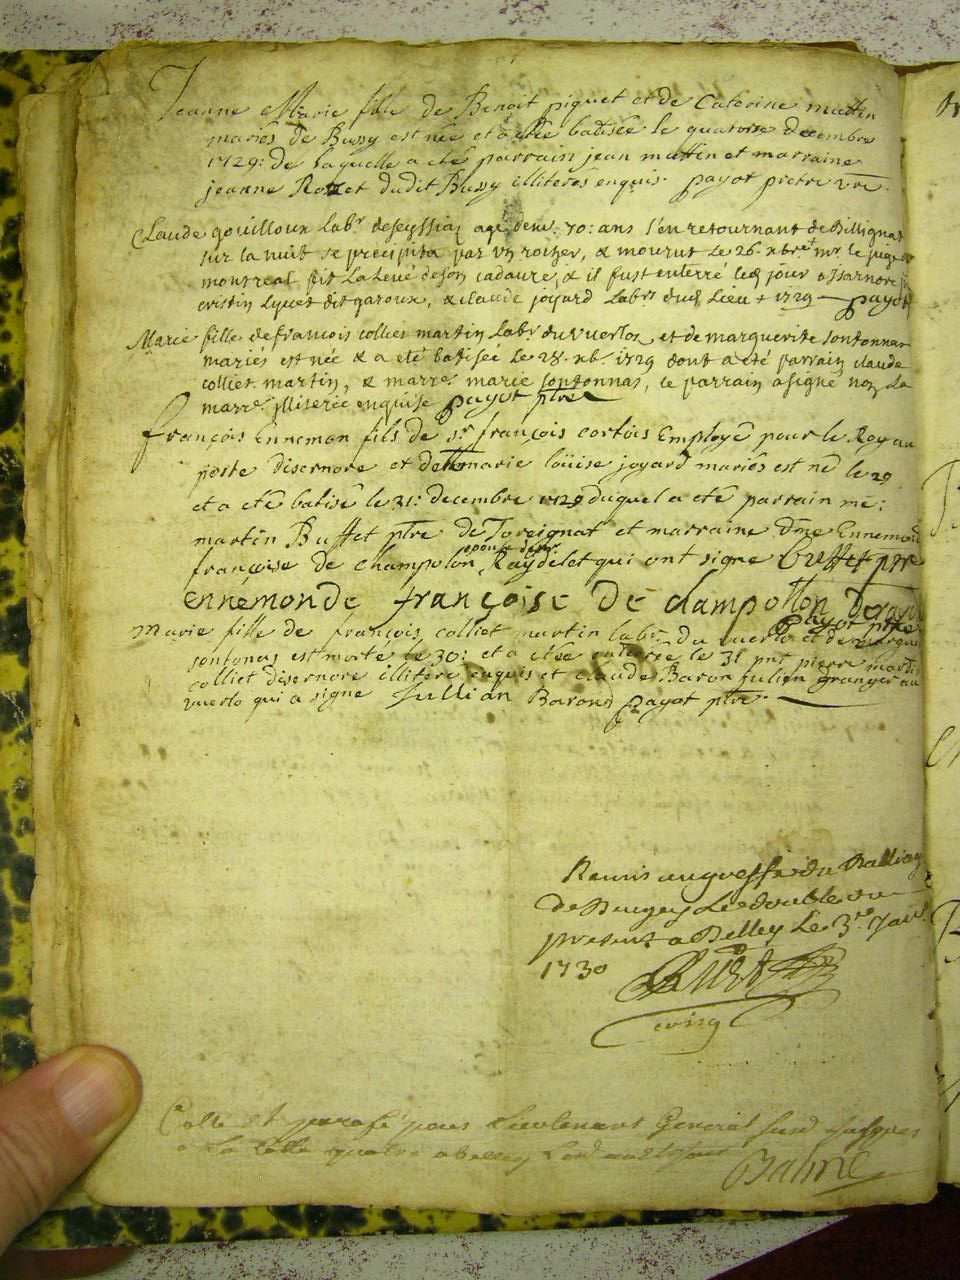 Jeanne Marie fille de Benoit piquet et de Caterine mattin
mariés de Bussy est née et a esté batisée le quatorze decembre
1729: de laquelle a eté parrain jean mattin et marraine
jeanne Rozet dudit Bussy illiteres enquis. payot pretre vre
Claude gouilloux labr deseyssiaz agé denv. 70: ans s'en retournant de Billignat
sur la nuit se precipita par un rocher, & mourut le 26. xbre mr le juge
montreal fit la levé de son cadavre, & il fust enterré led jour a Isarnore
cristin Lyvet dit garoux, & claude joyard Labrs dud Lieu + 1729 payot
Marie fille defrancois colliet martin labr du vuerlos et de marguerite sontonnas
mariés est née & a eté batisée le 28. xb. 1729 dont a eté parrain claude
colliet martin, & marre marie sontonnas, le parrain a signé non la
marre illiterée enquise payot ptre
françois Ennemon fils de sr françois cortois Employé pour le Roy au
poste disernore et de marie loüise joyard mariés est né le 29
et a eté batisé le 31: decembre 1729 duquel a eté parrain me:
martin Buffet ptre de Torignat et marraine dme Ennemonde
françoise de champolon Raydelet qui ont signé Buffet ptre
epouse de sr
ennemonde françoise de champollon
payot ptre
Marie fille de françois colliet martin labr du vuerlo et de
sontonas est morte le 30: et a etée enterrée le 31 pnt pierre
colliet disernore illitere enquis et claude Baron julien granger au
vuerlo qui a signé Jullian Barond payot ptre.
Remis au greffe du Balliage
de Bugey le double du
present a Belley le 3e janr
1730
Cotte et parafé par Lieutenant General
a
Balme